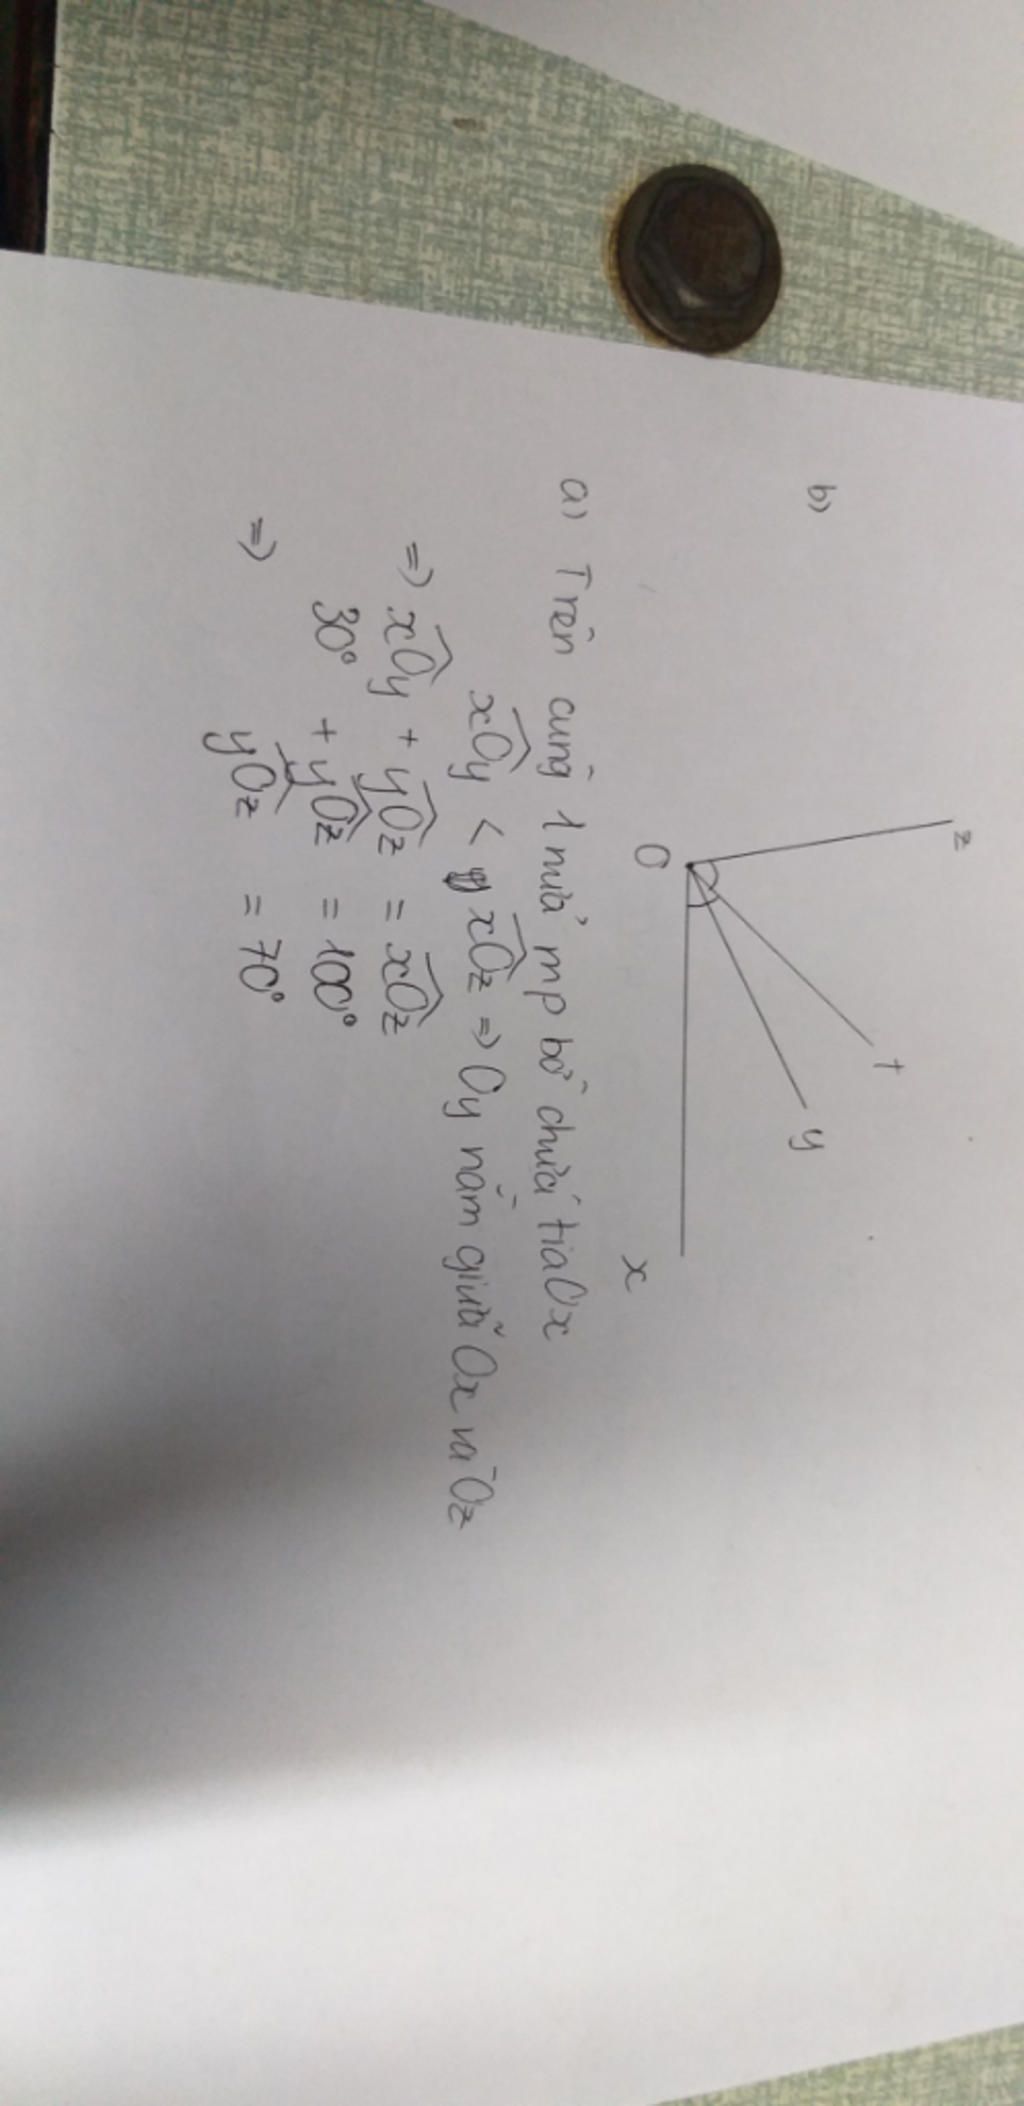 b)
z
t
y
O
x
a) Trên cùng 1 nửa mp bờ chứa tia Ox
xOy < xOz => Oy nằm giữa Ox và Oz
=> xOy + yOz = xOz
30° + yOz = 100°
=> yOz = 70°